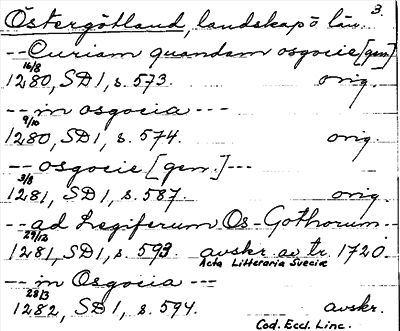 3.
Östergötland, landskap o län.
-- Curiam quandam osgocie [gen]
16/8
1280, SD 1, s. 573. orig.
-- in osgocia ---
9/10
1280, SD 1, s. 574. orig.
-- osgocie [gen.] ---
3/8
1281, SD 1, s. 587. orig.
-- ad Legiferum Os-Gothorum --
29/12
1281, SD 1, s. 593. avskr. av tr. 1720.
Acta Litteraria Sueciæ
-- in Osgocia ---
28/3
1282, SD 1, s. 594. avskr.
Cod. Eccl. Linc.